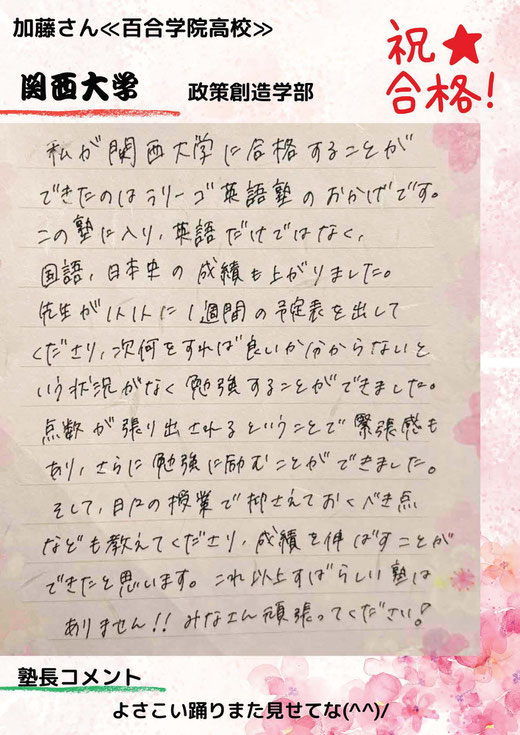 加藤さん≪百合学院高校≫
祝★
合格!
関西大学 政策創造学部
私が関西大学に合格することが
できたのはラリーゴ英語塾のおかげです。
この塾に入り、英語だけではなく、
国語、日本史の成績も上がりました。
先生が1人1人に1週間の予定表を出して
くださり、次何をすれば良いか分からないと
いう状況がなく勉強することができました。
点数が張り出されるということで緊張感も
あり、さらに勉強に励むことができました。
そして、日々の授業で抑さえておくべき点
なども教えてくださり、成績を伸ばすことが
できたと思います。これ以上すばらしい塾は
ありません!! みなさん頑張ってください!
塾長コメント
よさこい踊りまた見せてな(^^)/